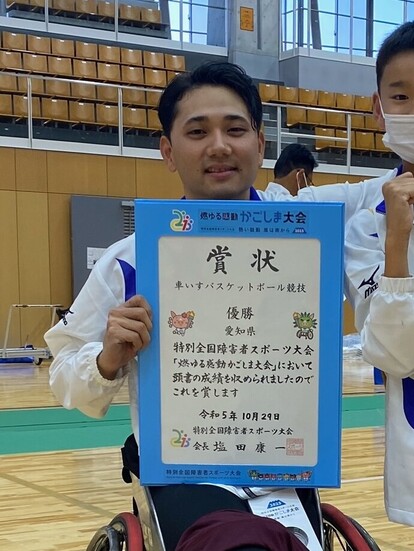 燃ゆる感動 かごしま大会
熱い鼓動 風は南から 2023
賞状
車いすバスケットボール競技
優勝
愛知県
特別全国障害者スポーツ大会
「燃ゆる感動かごしま大会」において
頭書の成績を収められましたので
これを賞します
令和5年10月29日
特別全国障害者スポーツ大会
会長 塩田康一
特別全国障害者スポーツ大会
かごしま大会